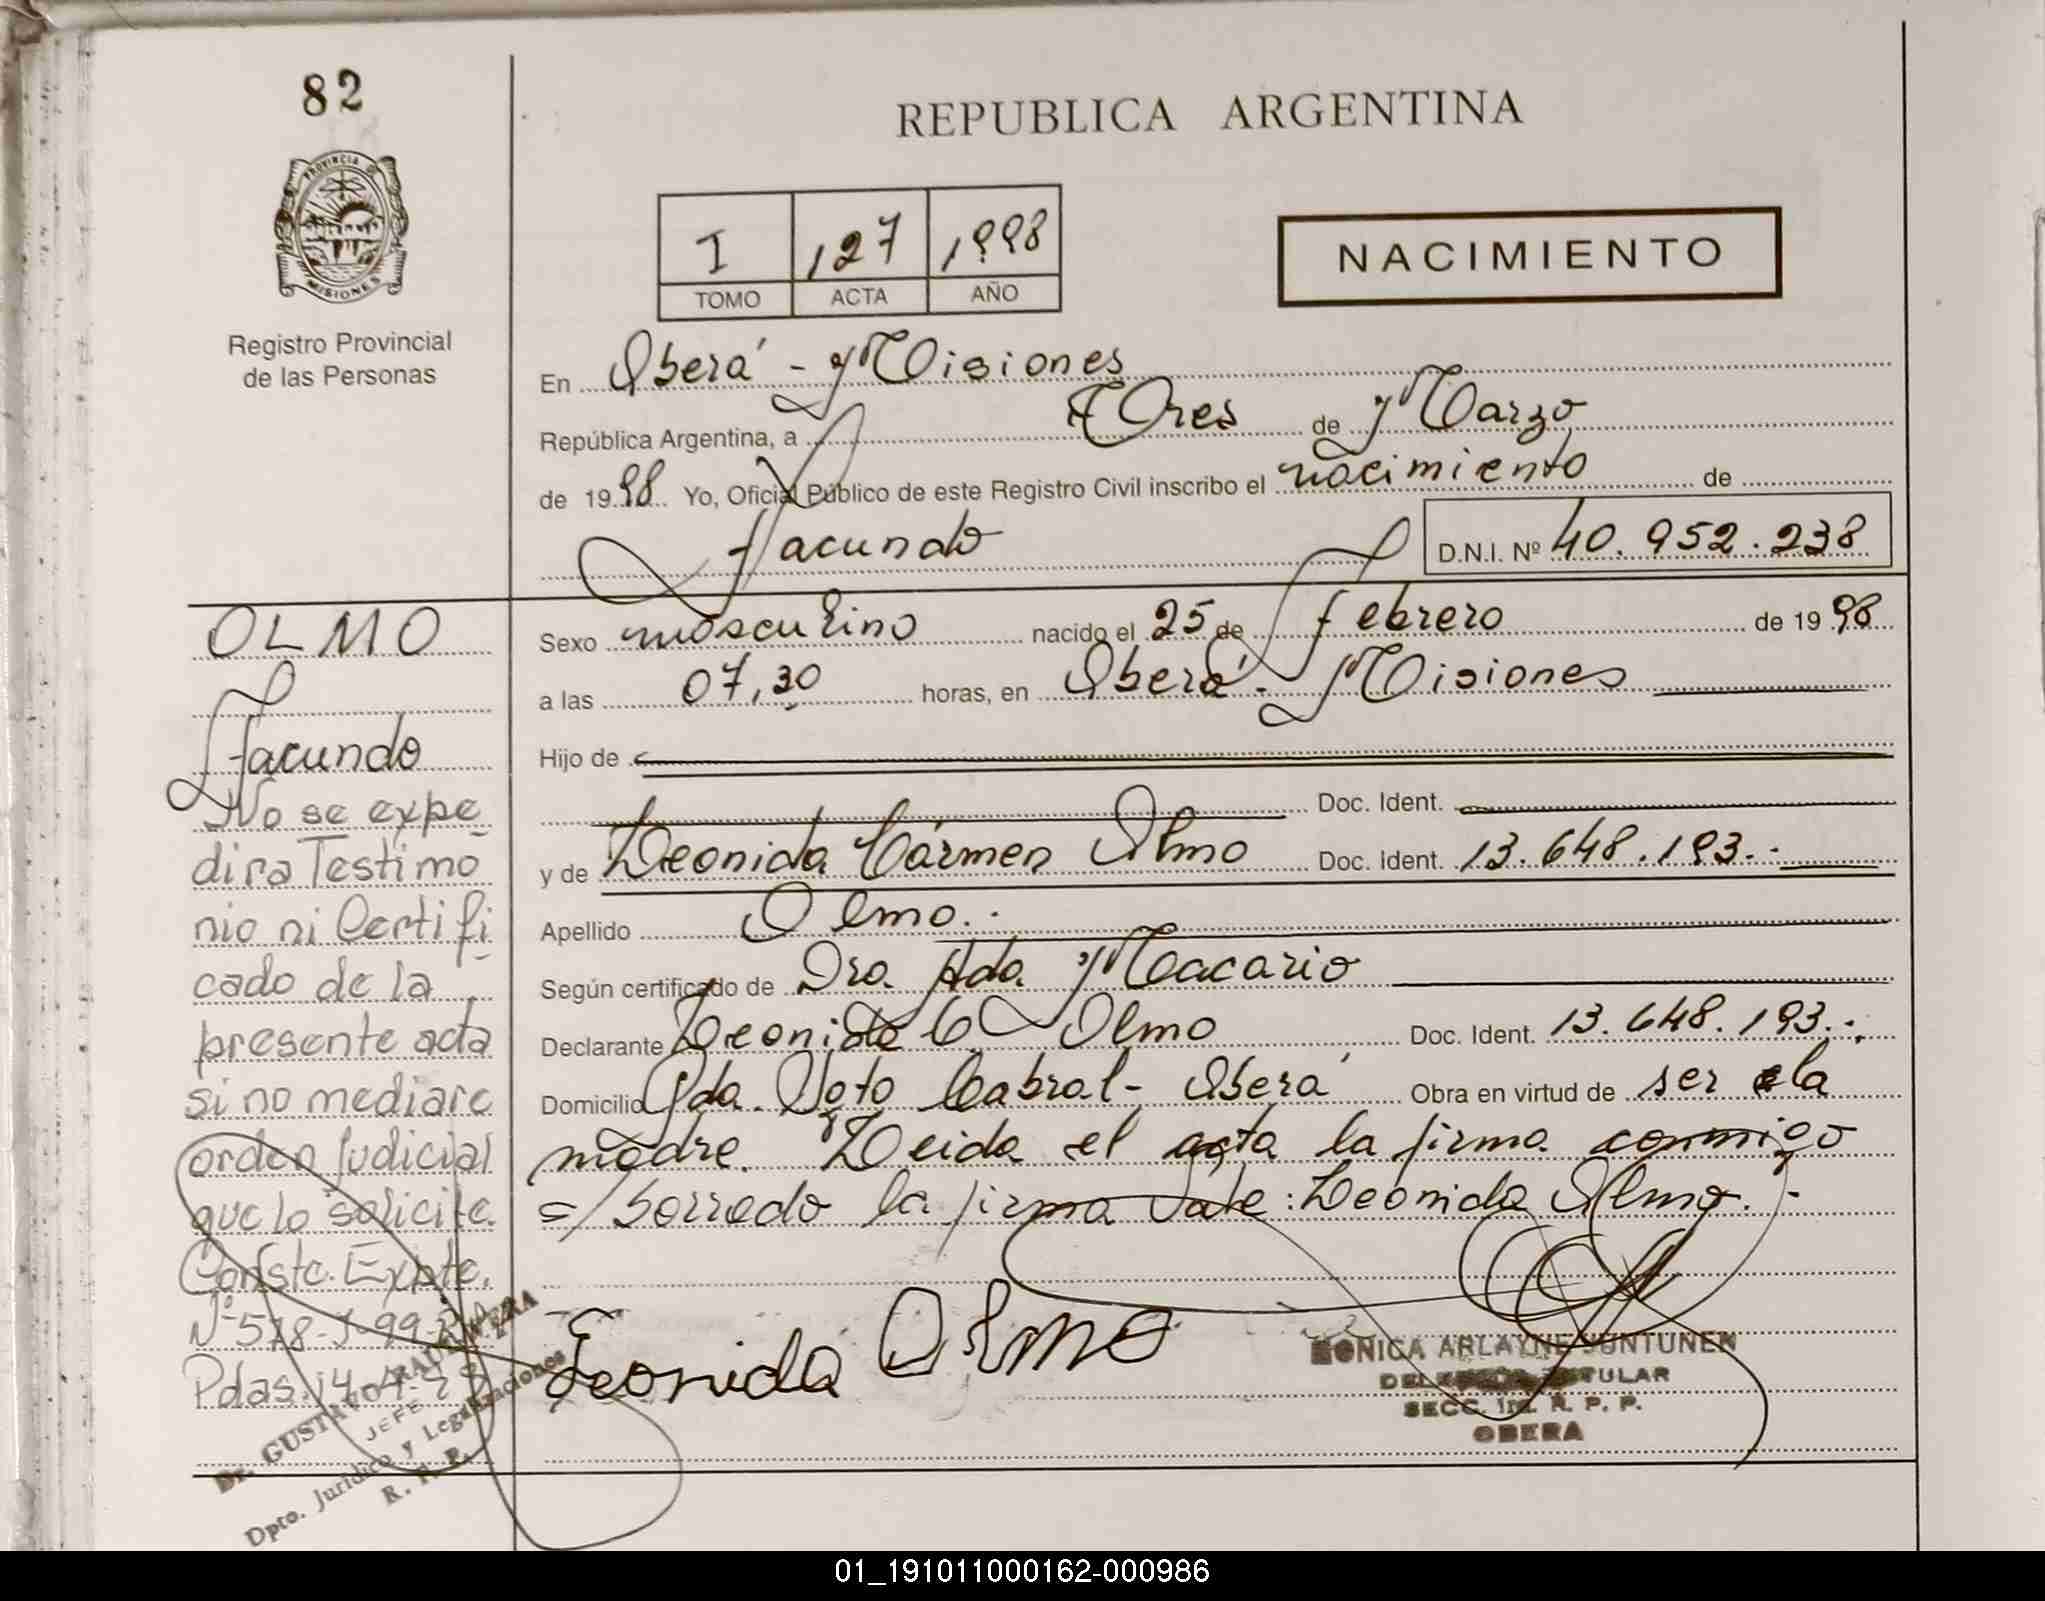 82
PROVINCIA D
MISIONES
Registro Provincial
de las Personas
REPUBLICA ARGENTINA
I 127 1998
TOMO ACTA AÑO
NACIMIENTO
En Oberá - Misiones
República Argentina, a Tres de Marzo
de 1998 Yo, Oficial Público de este Registro Civil inscribo el nacimiento de
Facundo D.N.I. Nº 40.952.238
Sexo masculino nacido el 25 de febrero de 1998
a las 07,30 horas, en Oberá - Misiones
Hijo de
Doc. Ident.
y de Leonida Cármen Olmo Doc. Ident. 13.648.193.-
Apellido Olmo.-
Según certificado de Dra. Ada Macario
Declarante Leonida C. Olmo Doc. Ident. 13.648.193.-
Domicilio Pda. Soto Cabral - Oberá Obra en virtud de ser la
madre. Leida el acta la firma conmigo
=/ borrado la firma Vale: Leonida Olmo.-
Leonida Olmo
MONICA ARLAYNE JUNTUNEN
TULAR
SECC. 1ra. R. P. P.
OBERA
OLMO
Facundo
No se expe
dira Testimo
nio ni Certifi
cado de la
presente acta
si no mediare
orden Judicial
que lo solicite.
Conste. Expte.
Nº 578-J-99-
Pdas. 14-
Dr. GUSTAVO RAUL
JEFE
Dpto. Jurídico y Legalizaciones
R. P. P.
01_191011000162-000986